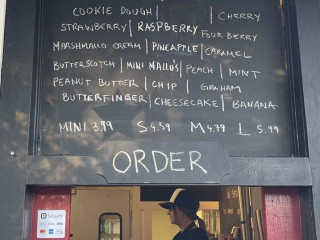 COOKIE DOUGH | CHERRY
STRAWBERRY | RASPBERRY FOUR BERRY
MARSHMALLO CREAM | PINEAPPLE | CARAMEL
BUTTERSCOTCH | MINI MALLO'S | PEACH | MINT
PEANUT BUTTER | CHIP | GRAHAM
BUTTERFINGER | CHEESECAKE | BANANA
MINI 3.99 S 4.59 M 4.99 L 5.99
ORDER
Square